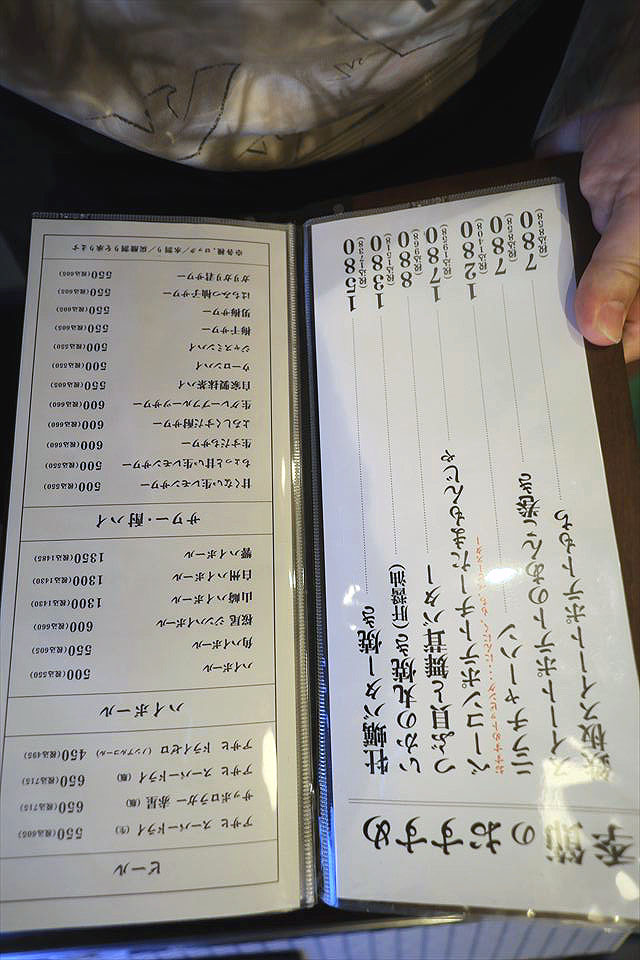 季節のおすすめ
牡蠣バター焼き 1580 (税込1738)
いかの丸焼き(肝醤油) 1380 (税込1518)
つぶ貝と舞茸バター 880 (税込968)
ベーコンポテトチーたまもんじゃ 1780 (税込1958)
ニラチャーハン 1280 (税込1408)
スイートポテトのあんこ巻き 780 (税込858)
鉄板スイートポテトもち 780 (税込858)
ビール
アサヒ スーパードライ (生) 550 (税込605)
サッポロラガー 赤星 (瓶) 650 (税込715)
アサヒ スーパードライ (瓶) 650 (税込715)
アサヒ ドライゼロ (ノンアルコール) 450 (税込495)
ハイボール
ハイボール 500 (税込550)
角ハイボール 550 (税込605)
桜尾ジンハイボール 600 (税込660)
山崎ハイボール 1300 (税込1430)
白州ハイボール 1300 (税込1430)
響ハイボール 1350 (税込1485)
サワー・酎ハイ
甘くない生レモンサワー 500 (税込550)
ちょっと甘い生レモンサワー 500 (税込550)
生すだちサワー 600 (税込660)
よろしくすだ酎サワー 600 (税込660)
生グレープフルーツサワー 600 (税込660)
自家製抹茶ハイ 550 (税込605)
ウーロンハイ 500 (税込550)
ジャスミンハイ 500 (税込550)
梅干サワー 550 (税込605)
男梅サワー 550 (税込605)
はちみつ柚子サワー 550 (税込605)
ガリガリ君サワー 550 (税込605)
※各種、ロック／水割り／炭酸割りを承ります